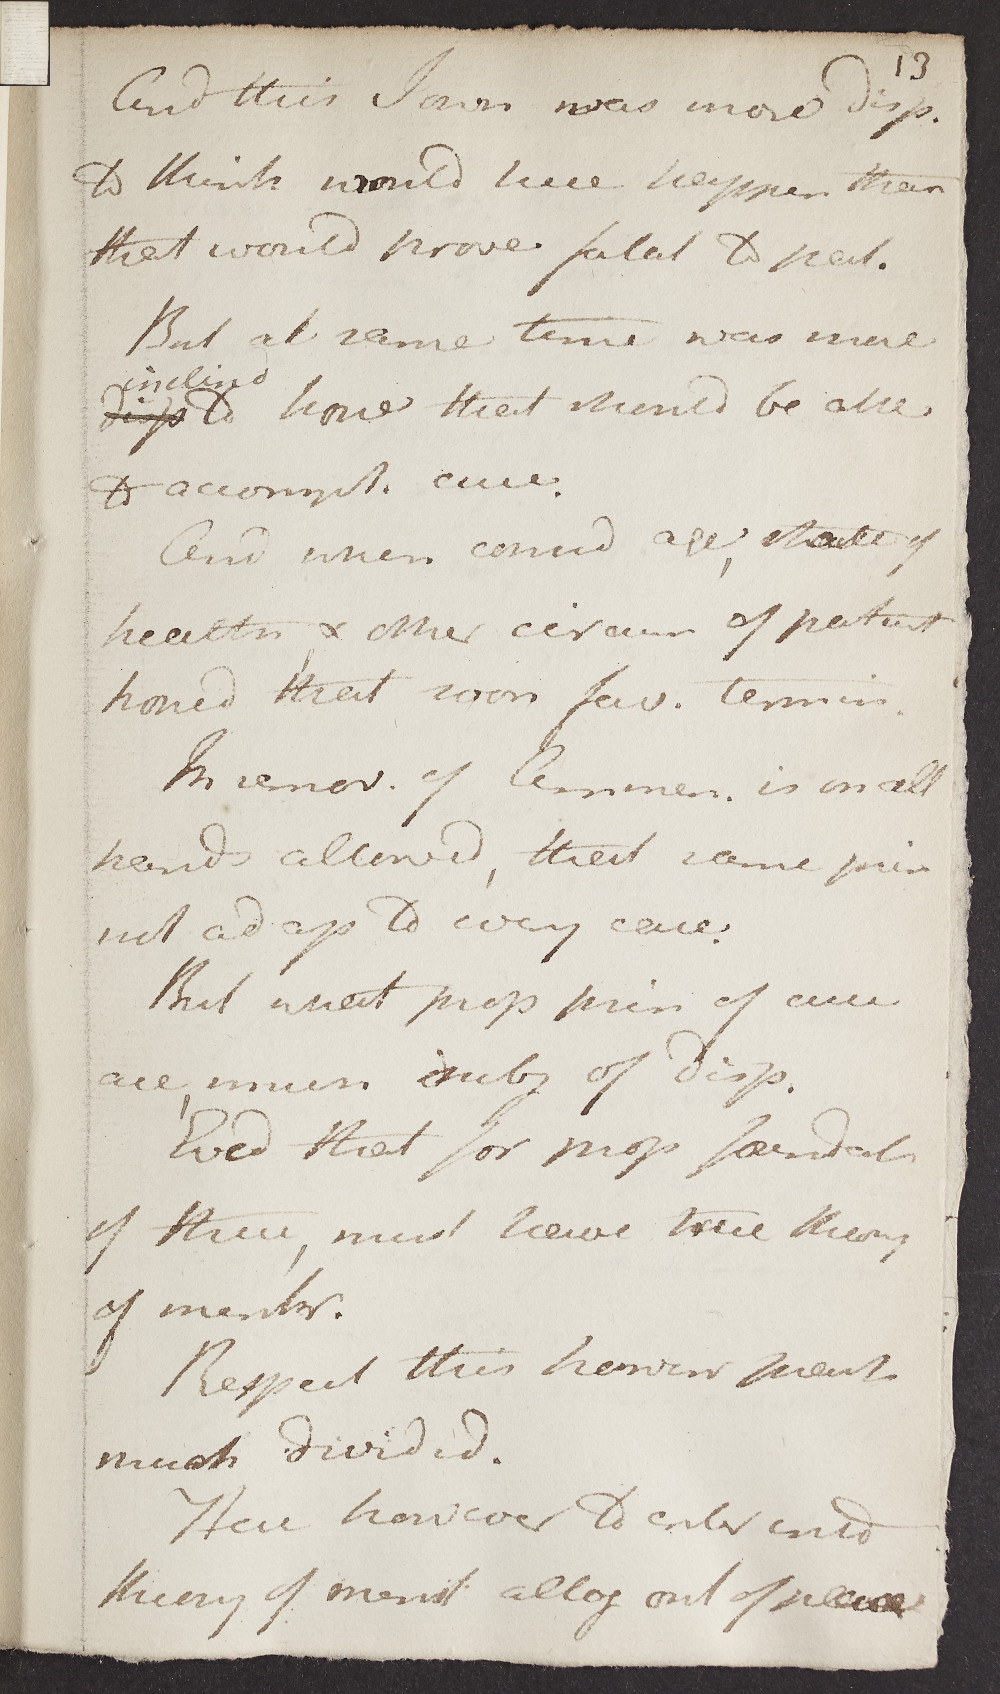 13
And this I own was more disp.
to think would here happen than
that would prove fatal to pat.
But at same time was more
inclind
disp to hope that should be able
to accompt. cure.
And when consid age, state of
health & other circum of patient
hoped that soon fav. termin.
In remov. of Ammen. is on all
hands allowed, that same prin
not adap to every case.
But what prop prin of cure
are, much subj of disp.
Evid that for prop foundat
of these, must have true theory
of menstr.
Respect this however pract
much divided.
Here however to enter into
theory of menst altog out of place